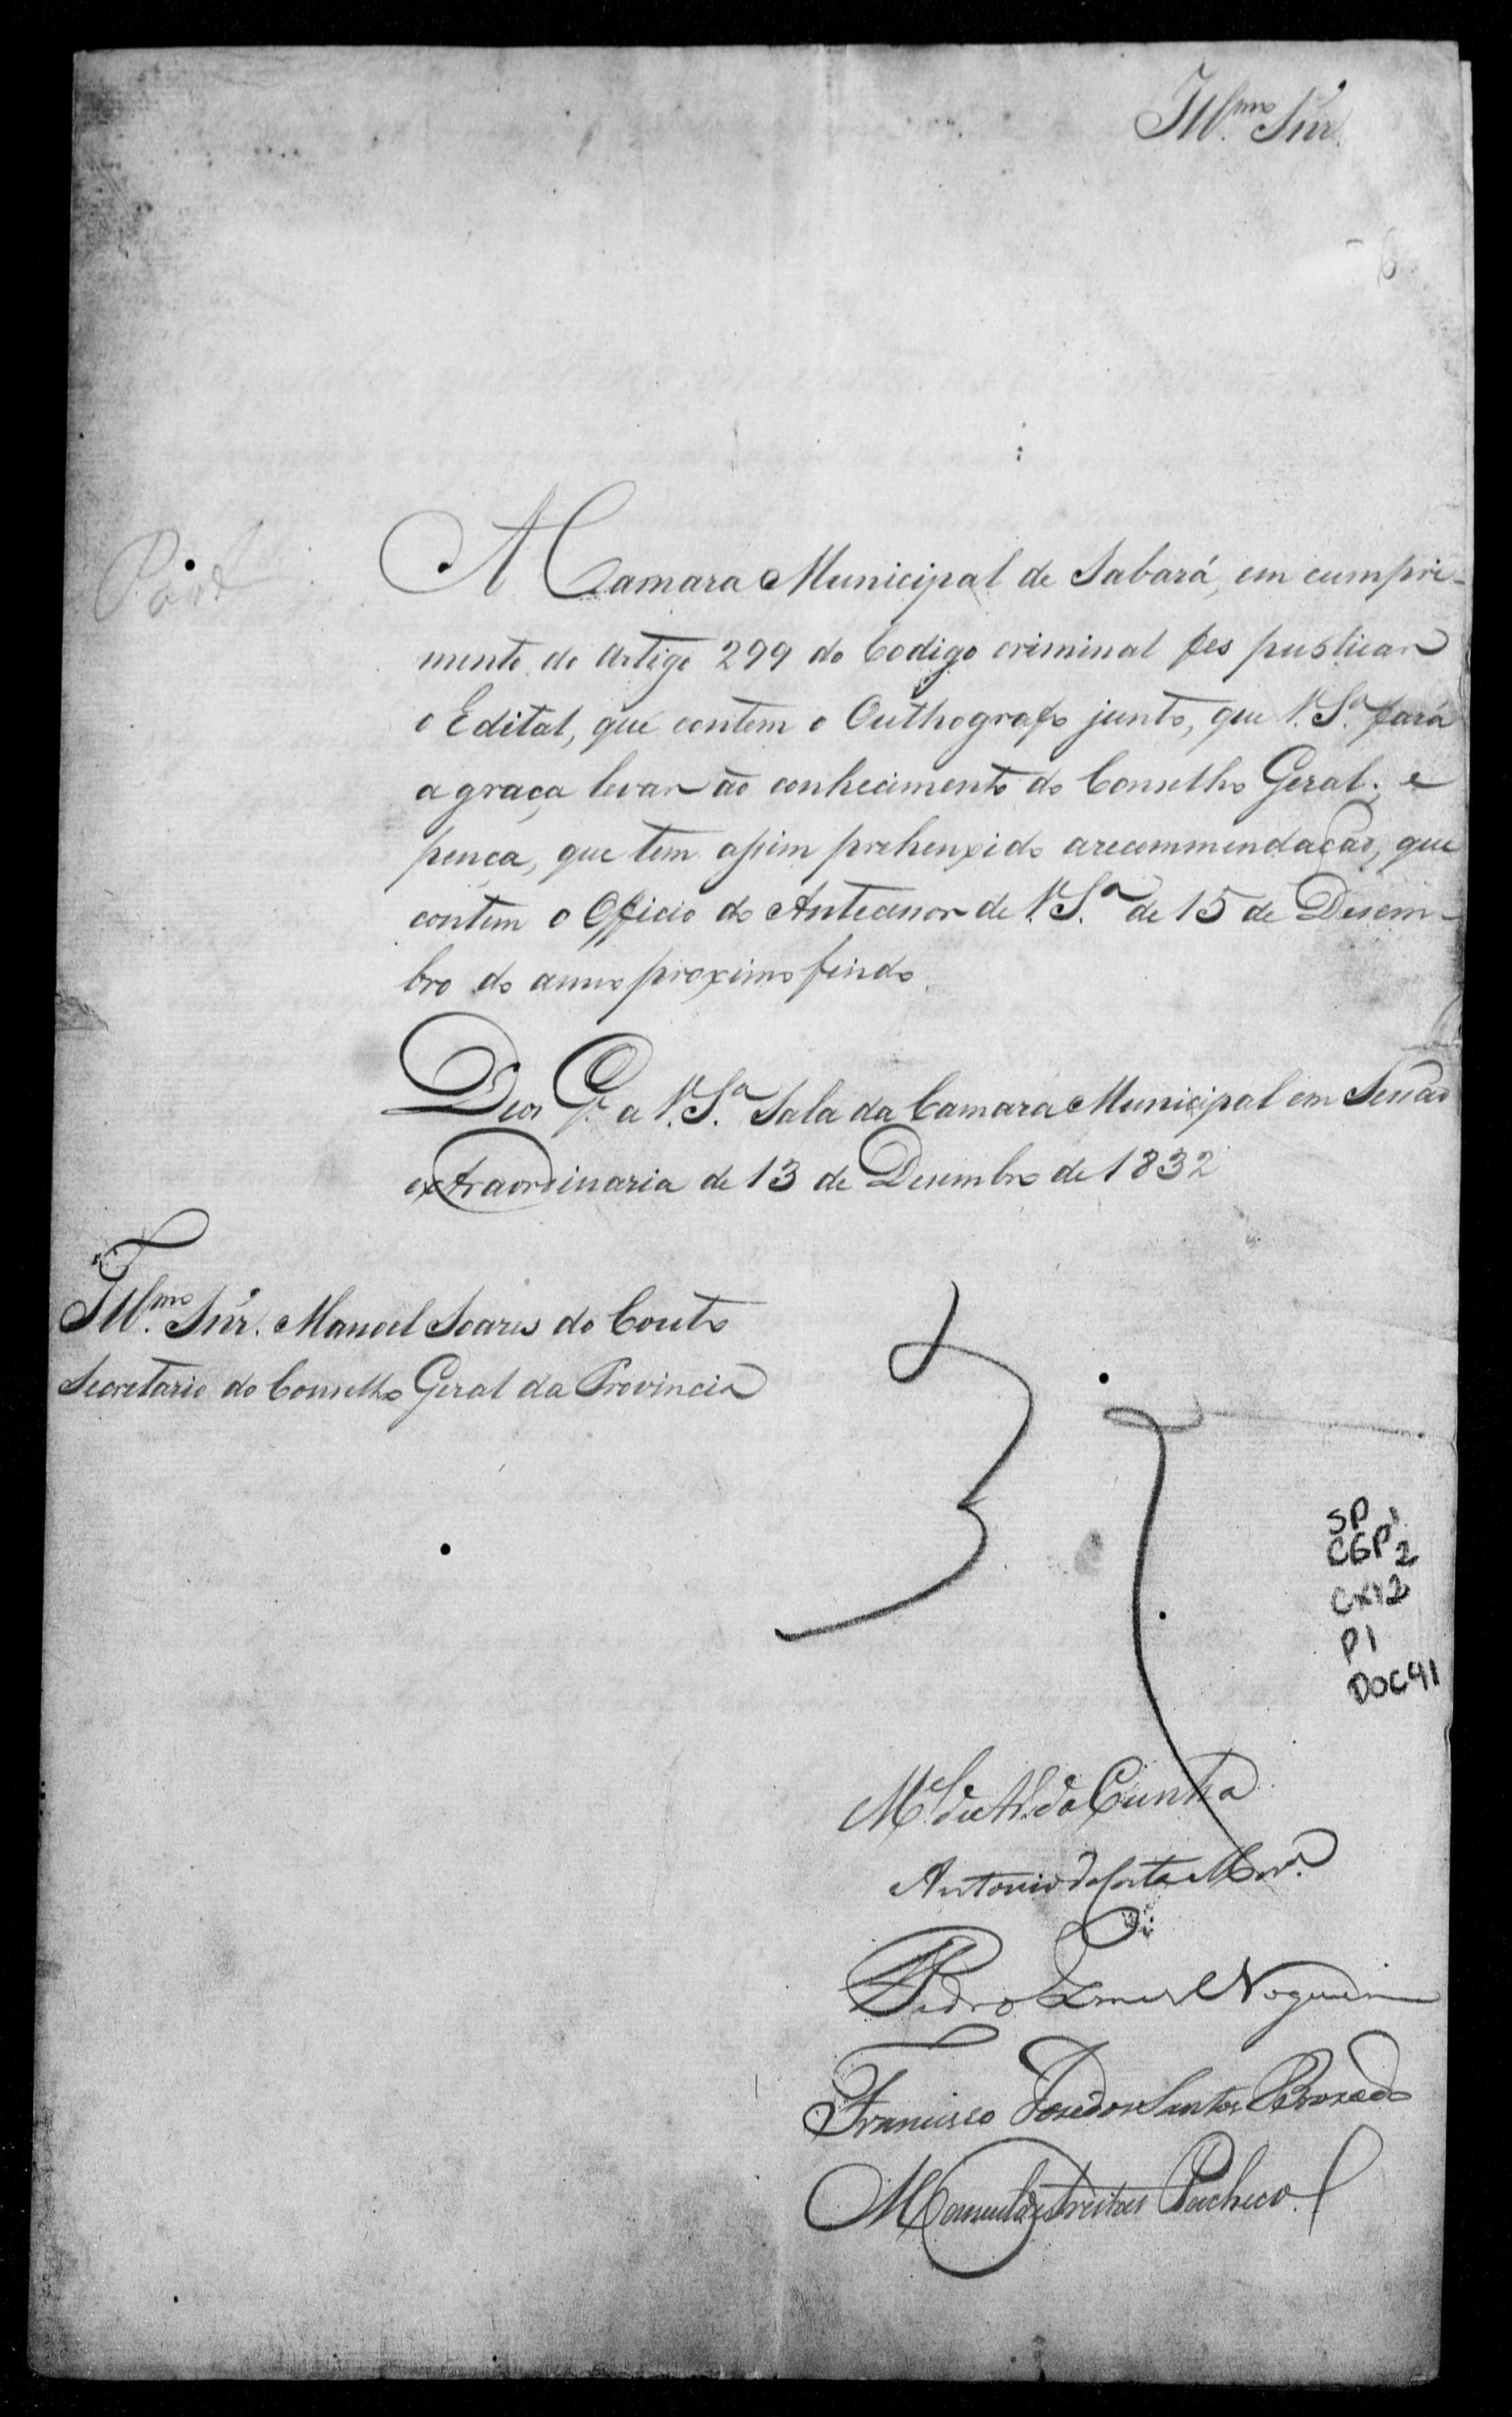 Ill.mo Snr.
6
A Camara Municipal de Sabará, em cumpri-
mento do artigo 299 do Codigo criminal fes publicar
o Edital, que contem o Outhografo junto, que V. S.a fará
a graça levar ao conhecimento do Conselho Geral; e
pença, que tem assim prehenxido arecommendação, que
contem o Officio do Antecesor de V. S.a de 15 de Desem-
bro do anno proximo findo.
Deos G.e a V. S.a Sala da Camara Municipal em Sessão
extraordinaria de 13 de Desembro de 1832
Ill.mo Snr. Manoel Soares do Couto
Secretario do Conselho Geral da Provincia
SP
CGP 1 2
CX12
P1
DOC 41
M.el de da Cunha
Antonio da Costa
Pedro Gomes Nogueira
Francisco Jose dos Santos Broxado
Manuel de Freitas Pacheco